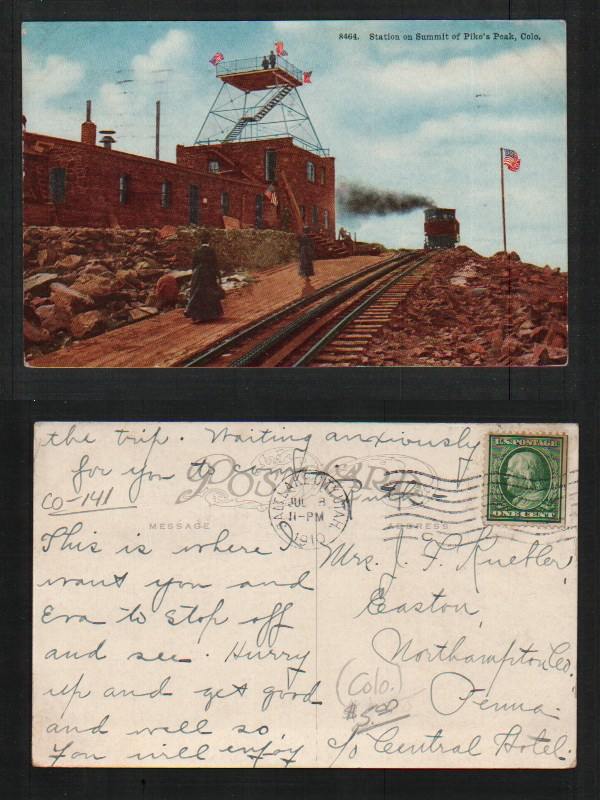 8464. Station on Summit of Pike's Peak, Colo.
the trip. Waiting anxiously
for you to come Ruth
CO-141
POST CARD
SALT LAKE CITY, UTAH
JUL 8
11-PM
1910
U.S. POSTAGE
ONE CENT
MESSAGE
ADDRESS
This is where I
want you and
Eva to stop off
and see. Hurry
up and get good
and well so
you will enjoy
Mrs. J. F. Kuebler
Easton,
Northampton Co.
Penna.
c/o Central Hotel.
(Colo.)
$5.00